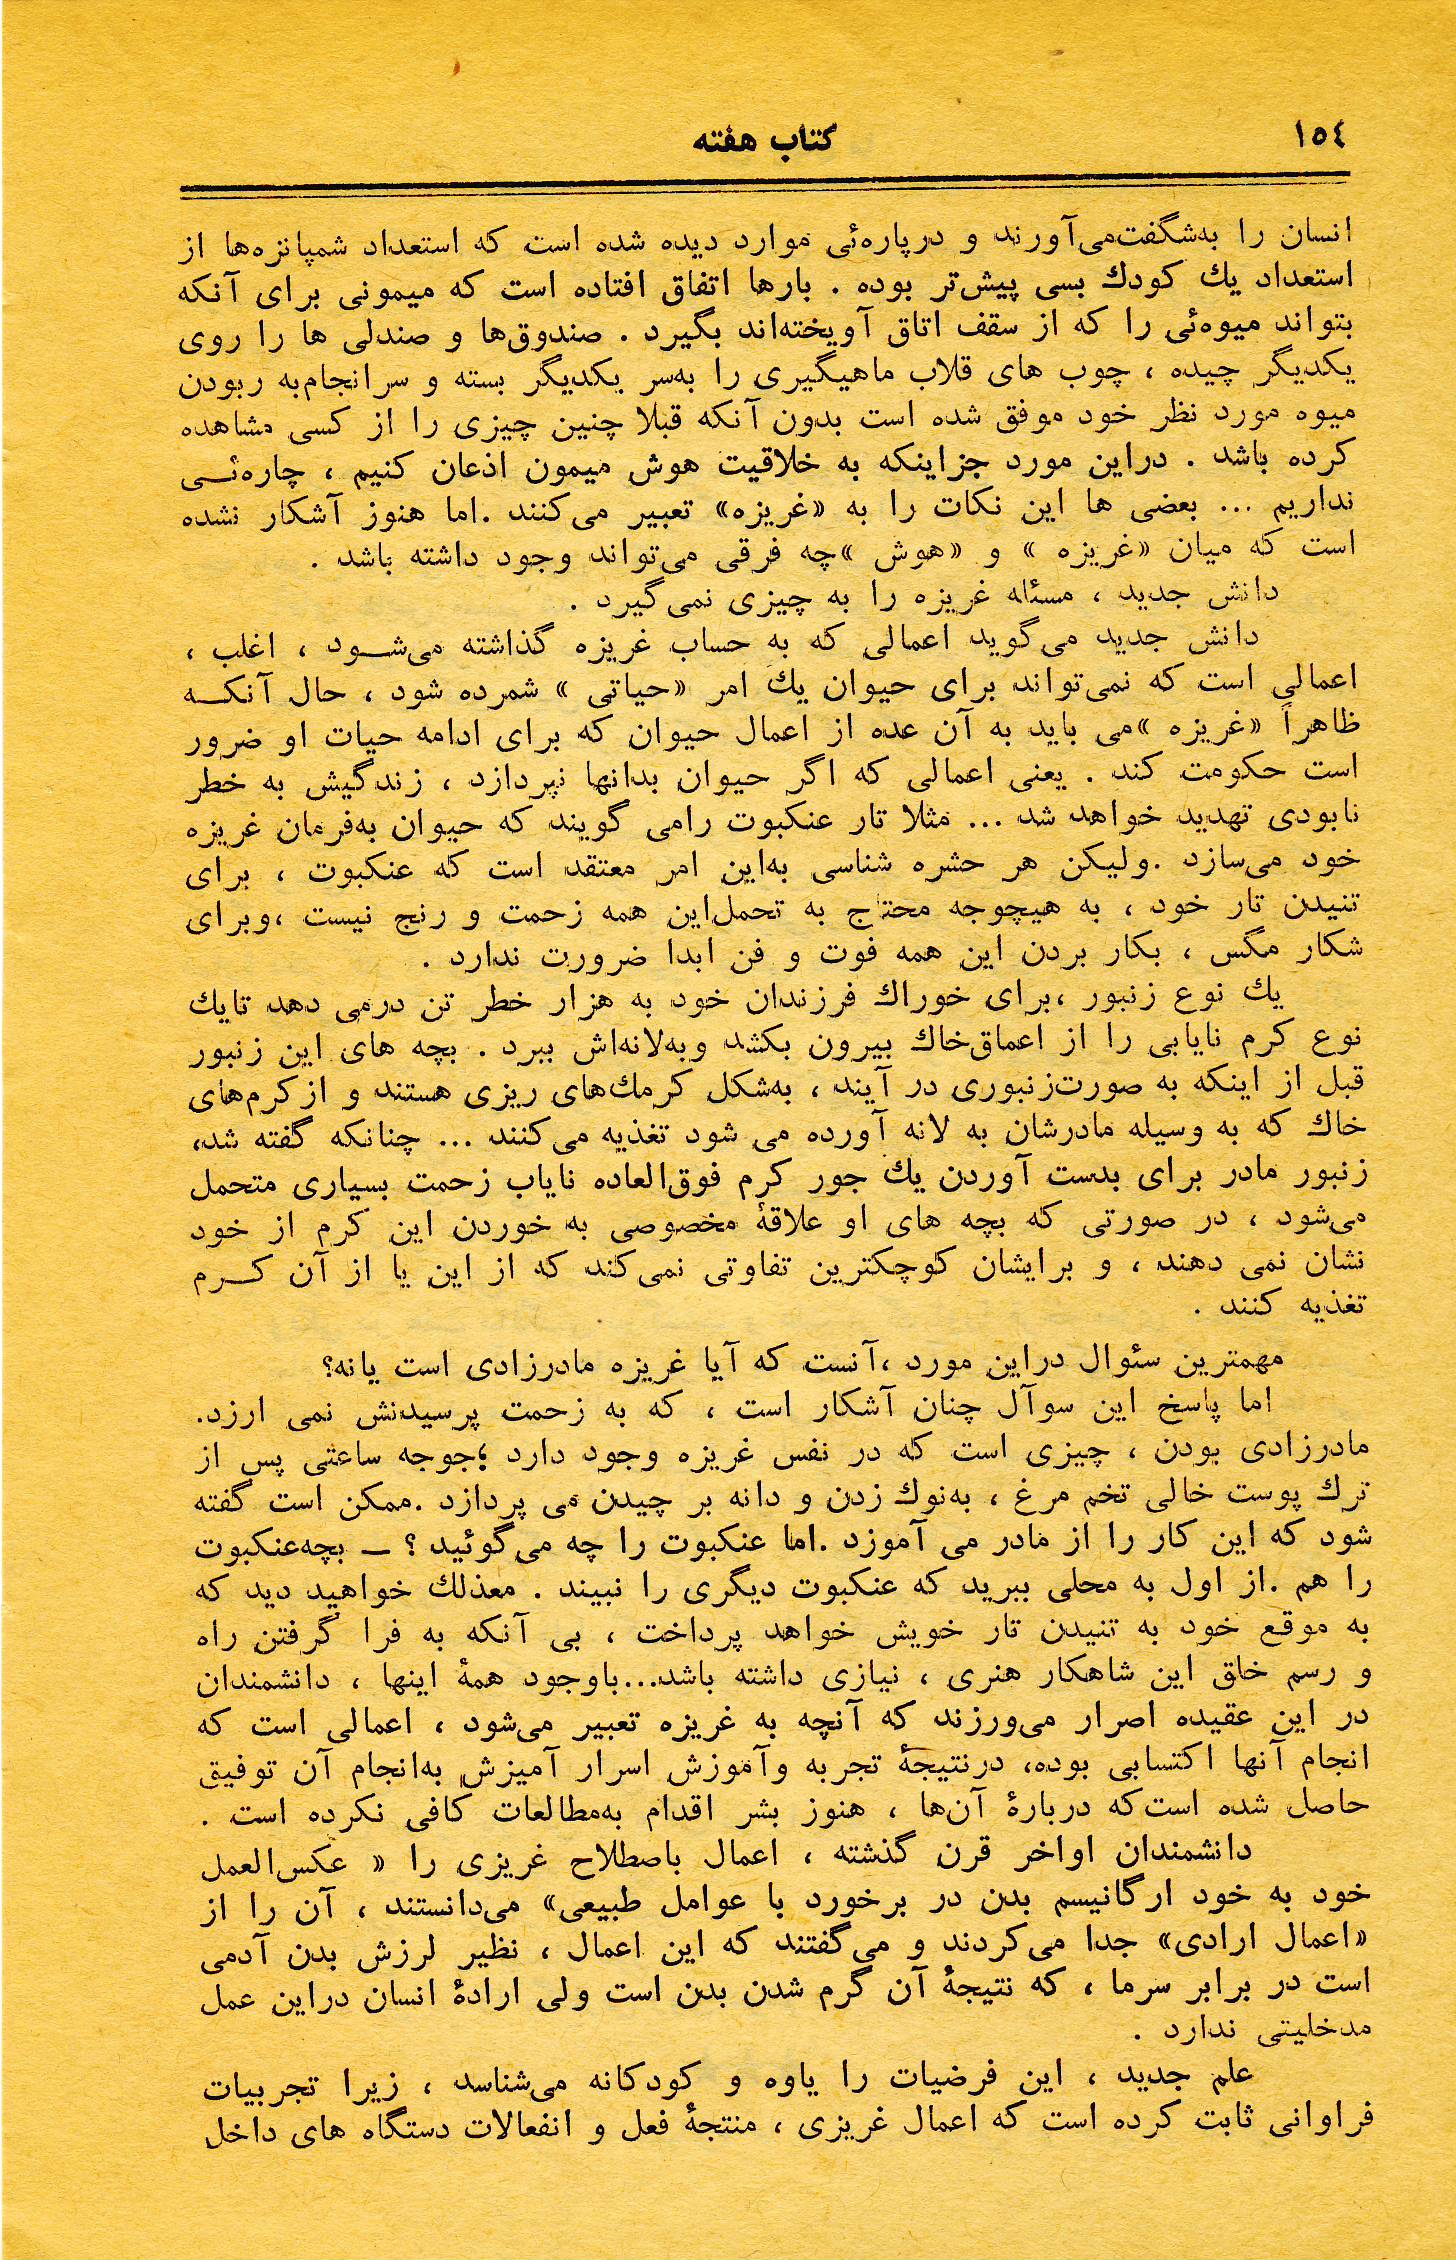 ١٥٤
کتاب هفته
انسان را به‌شگفت‌می‌آورند و درپاره‌ئی موارد دیده شده است که استعداد شمپانزه‌ها از
استعداد یك کودك بسی پیش‌تر بوده . بارها اتفاق افتاده است که میمونی برای آنکه
بتواند میوه‌ئی را که از سقف اتاق آویخته‌اند بگیرد . صندوق‌ها و صندلی ها را روی
یکدیگر چیده ، چوب های قلاب ماهیگیری را به‌سر یکدیگر بسته و سرانجام‌به ربودن
میوه مورد نظر خود موفق شده است بدون آنکه قبلا چنین چیزی را از کسی مشاهده
کرده باشد . دراین مورد جزاینکه به خلاقیت هوش میمون اذعان کنیم ، چاره‌ئـــی
نداریم ... بعضی ها این نکات را به «غریزه» تعبیر می‌کنند .اما هنوز آشکار نشده
است که میان «غریزه » و «هوش »چه فرقی می‌تواند وجود داشته باشد .
دانش جدید ، مسئاله غریزه را به چیزی نمی‌گیرد .
دانش جدید می‌گوید اعمالی که به حساب غریزه گذاشته می‌شـــود ، اغلب ،
اعمالی است که نمی‌تواند برای حیوان یك امر «حیاتی » شمرده شود ، حال آنکـــه
ظاهراً «غریزه »می باید به آن عده از اعمال حیوان که برای ادامه حیات او ضرور
است حکومت کند . یعنی اعمالی که اگر حیوان بدانها نپردازد ، زندگیش به خطر
نابودی تهدید خواهد شد ... مثلا تار عنکبوت رامی گویند که حیوان به‌فرمان غریزه
خود می‌سازد .ولیکن هر حشره شناسی به‌این امر معتقد است که عنکبوت ، برای
تنیدن تار خود ، به هیچوجه محتاج به تحمل‌این همه زحمت و رنج نیست ،وبرای
شکار مگس ، بکار بردن این همه فوت و فن ابدا ضرورت ندارد .
یك نوع زنبور ،برای خوراك فرزندان خود به هزار خطر تن درمی دهد تایك
نوع کرم نایابی را از اعماق‌خاك بیرون بکشد وبه‌لانه‌اش ببرد . بچه های این زنبور
قبل از اینکه به صورت‌زنبوری در آیند ، به‌شکل کرمك‌های ریزی هستند و ازکرم‌های
خاك که به وسیله مادرشان به لانه آورده می شود تغذیه می‌کنند ... چنانکه گفته شد،
زنبور مادر برای بدست آوردن یك جور کرم فوق‌العاده نایاب زحمت بسیاری متحمل
می‌شود ، در صورتی که بچه های او علاقهٔ مخصوصی به خوردن این کرم از خود
نشان نمی دهند ، و برایشان کوچکترین تفاوتی نمی‌کند که از این یا از آن کـــرم
تغذیه کنند .
مهمترین سئوال دراین مورد ،آنست که آیا غریزه مادرزادی است یانه؟
اما پاسخ این سوآل چنان آشکار است ، که به زحمت پرسیدنش نمی ارزد.
مادرزادی بودن ، چیزی است که در نفس غریزه وجود دارد ؛جوجه ساعتی پس از
ترك پوست خالی تخم مرغ ، به‌نوك زدن و دانه بر چیدن می پردازد .ممکن است گفته
شود که این کار را از مادر می آموزد .اما عنکبوت را چه می‌گوئید ؟ ــ بچه‌عنکبوت
را هم .از اول به محلی ببرید که عنکبوت دیگری را نبیند . معذلك خواهید دید که
به موقع خود به تنیدن تار خویش خواهد پرداخت ، بی آنکه به فرا گرفتن راه
و رسم خلق این شاهکار هنری ، نیازی داشته باشد...باوجود همهٔ اینها ، دانشمندان
در این عقیده اصرار می‌ورزند که آنچه به غریزه تعبیر می‌شود ، اعمالی است که
انجام آنها اکتسابی بوده، درنتیجهٔ تجربه وآموزش اسرار آمیزش به‌انجام آن توفیق
حاصل شده است‌که دربارهٔ آن‌ها ، هنوز بشر اقدام به‌مطالعات کافی نکرده است .
دانشمندان اواخر قرن گذشته ، اعمال باصطلاح غریزی را « عکس‌العمل
خود به خود ارگانیسم بدن در برخورد با عوامل طبیعی» می‌دانستند ، آن را از
«اعمال ارادی» جدا می‌کردند و می‌گفتند که این اعمال ، نظیر لرزش بدن آدمی
است در برابر سرما ، که نتیجهٔ آن گرم شدن بدن است ولی ارادهٔ انسان دراین عمل
مدخلیتی ندارد .
علم جدید ، این فرضیات را یاوه و کودکانه می‌شناسد ، زیرا تجربیات
فراوانی ثابت کرده است که اعمال غریزی ، منتجهٔ فعل و انفعالات دستگاه های داخل